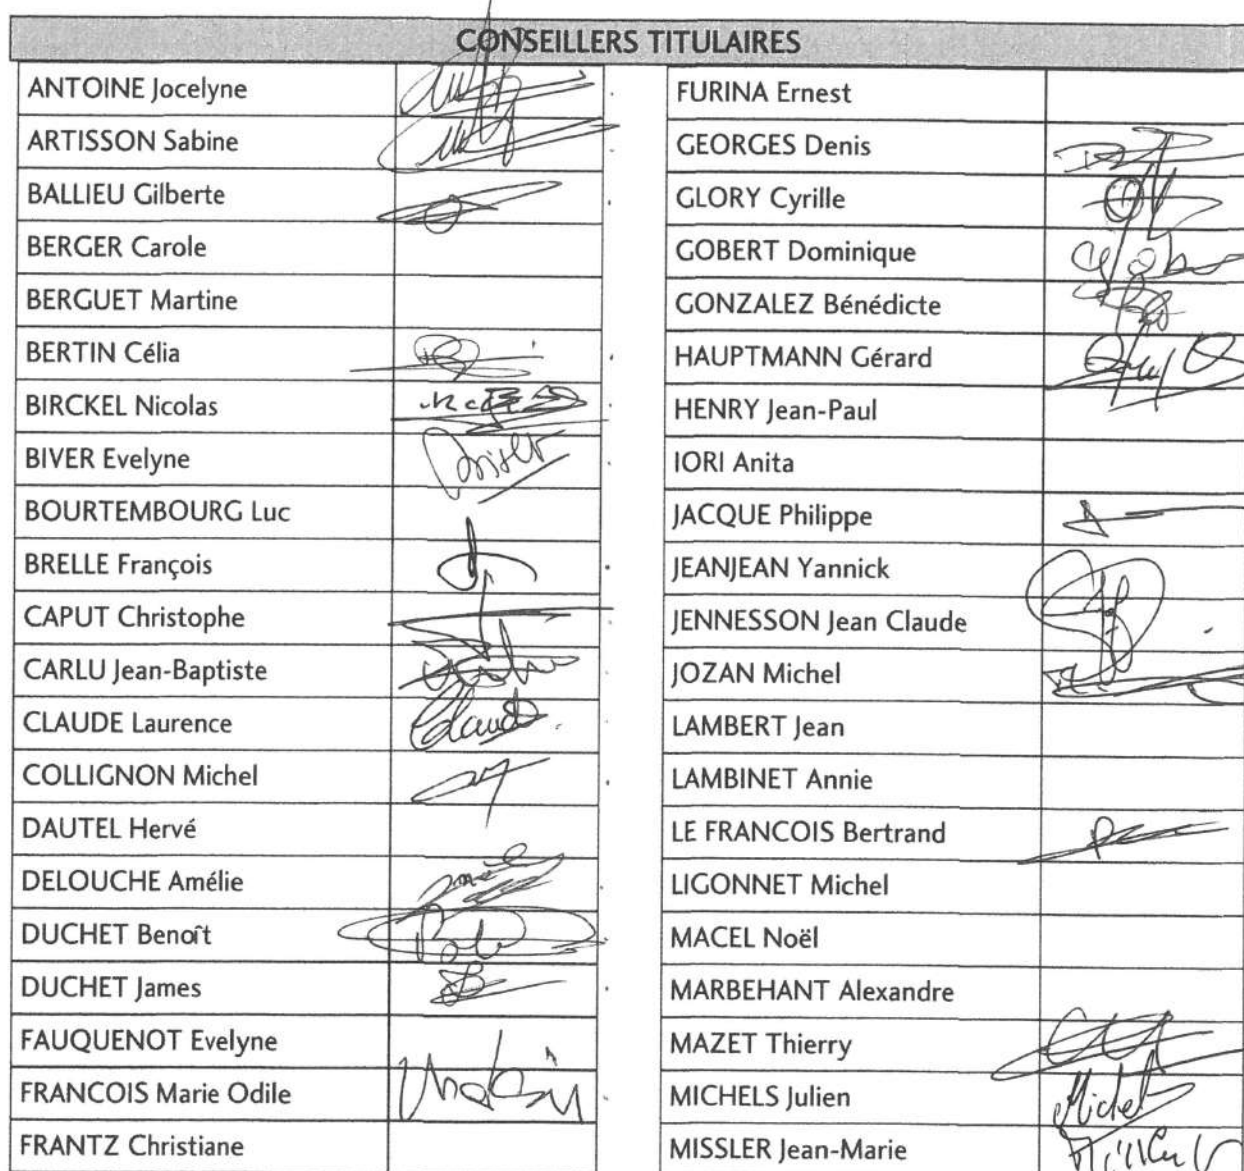 CONSEILLERS TITULAIRES
ANTOINE Jocelyne
ARTISSON Sabine
BALLIEU Gilberte
BERGER Carole
BERGUET Martine
BERTIN Célia
BIRCKEL Nicolas
BIVER Evelyne
BOURTEMBOURG Luc
BRELLE François
CAPUT Christophe
CARLU Jean-Baptiste
CLAUDE Laurence
COLLIGNON Michel
DAUTEL Hervé
DELOUCHE Amélie
DUCHET Benoît
DUCHET James
FAUQUENOT Evelyne
FRANCOIS Marie Odile
FRANTZ Christiane
FURINA Ernest
GEORGES Denis
GLORY Cyrille
GOBERT Dominique
GONZALEZ Bénédicte
HAUPTMANN Gérard
HENRY Jean-Paul
IORI Anita
JACQUE Philippe
JEANJEAN Yannick
JENNESSON Jean Claude
JOZAN Michel
LAMBERT Jean
LAMBINET Annie
LE FRANCOIS Bertrand
LIGONNET Michel
MACEL Noël
MARBEHANT Alexandre
MAZET Thierry
MICHELS Julien
MISSLER Jean-Marie